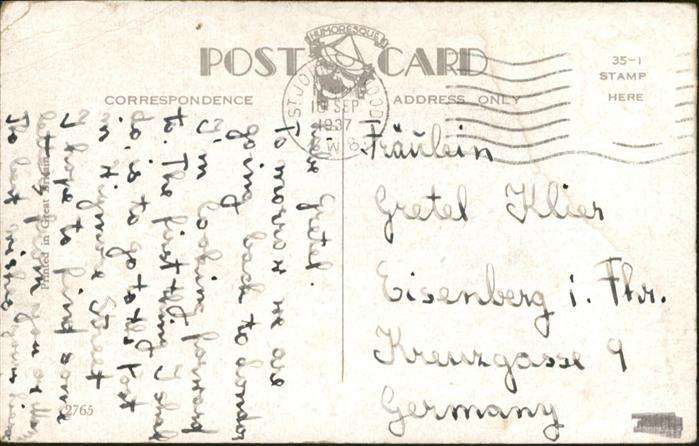 HUMORESQUE
POST CARD
CORRESPONDENCE
ADDRESS ONLY
35-1
STAMP
HERE
ST. JO
OOD
SEP
1937
Gretel.
Tomorrow we are
going back to London
I'm looking forward
to. The first thing I shall
do, is to go to the Post
in
Street
I hope to find some
from
The best wishes
Printed in Great Britain
2765
Fräulein
Gretel Klier
Eisenberg i. Thr.
Kreuzgasse 9
Germany